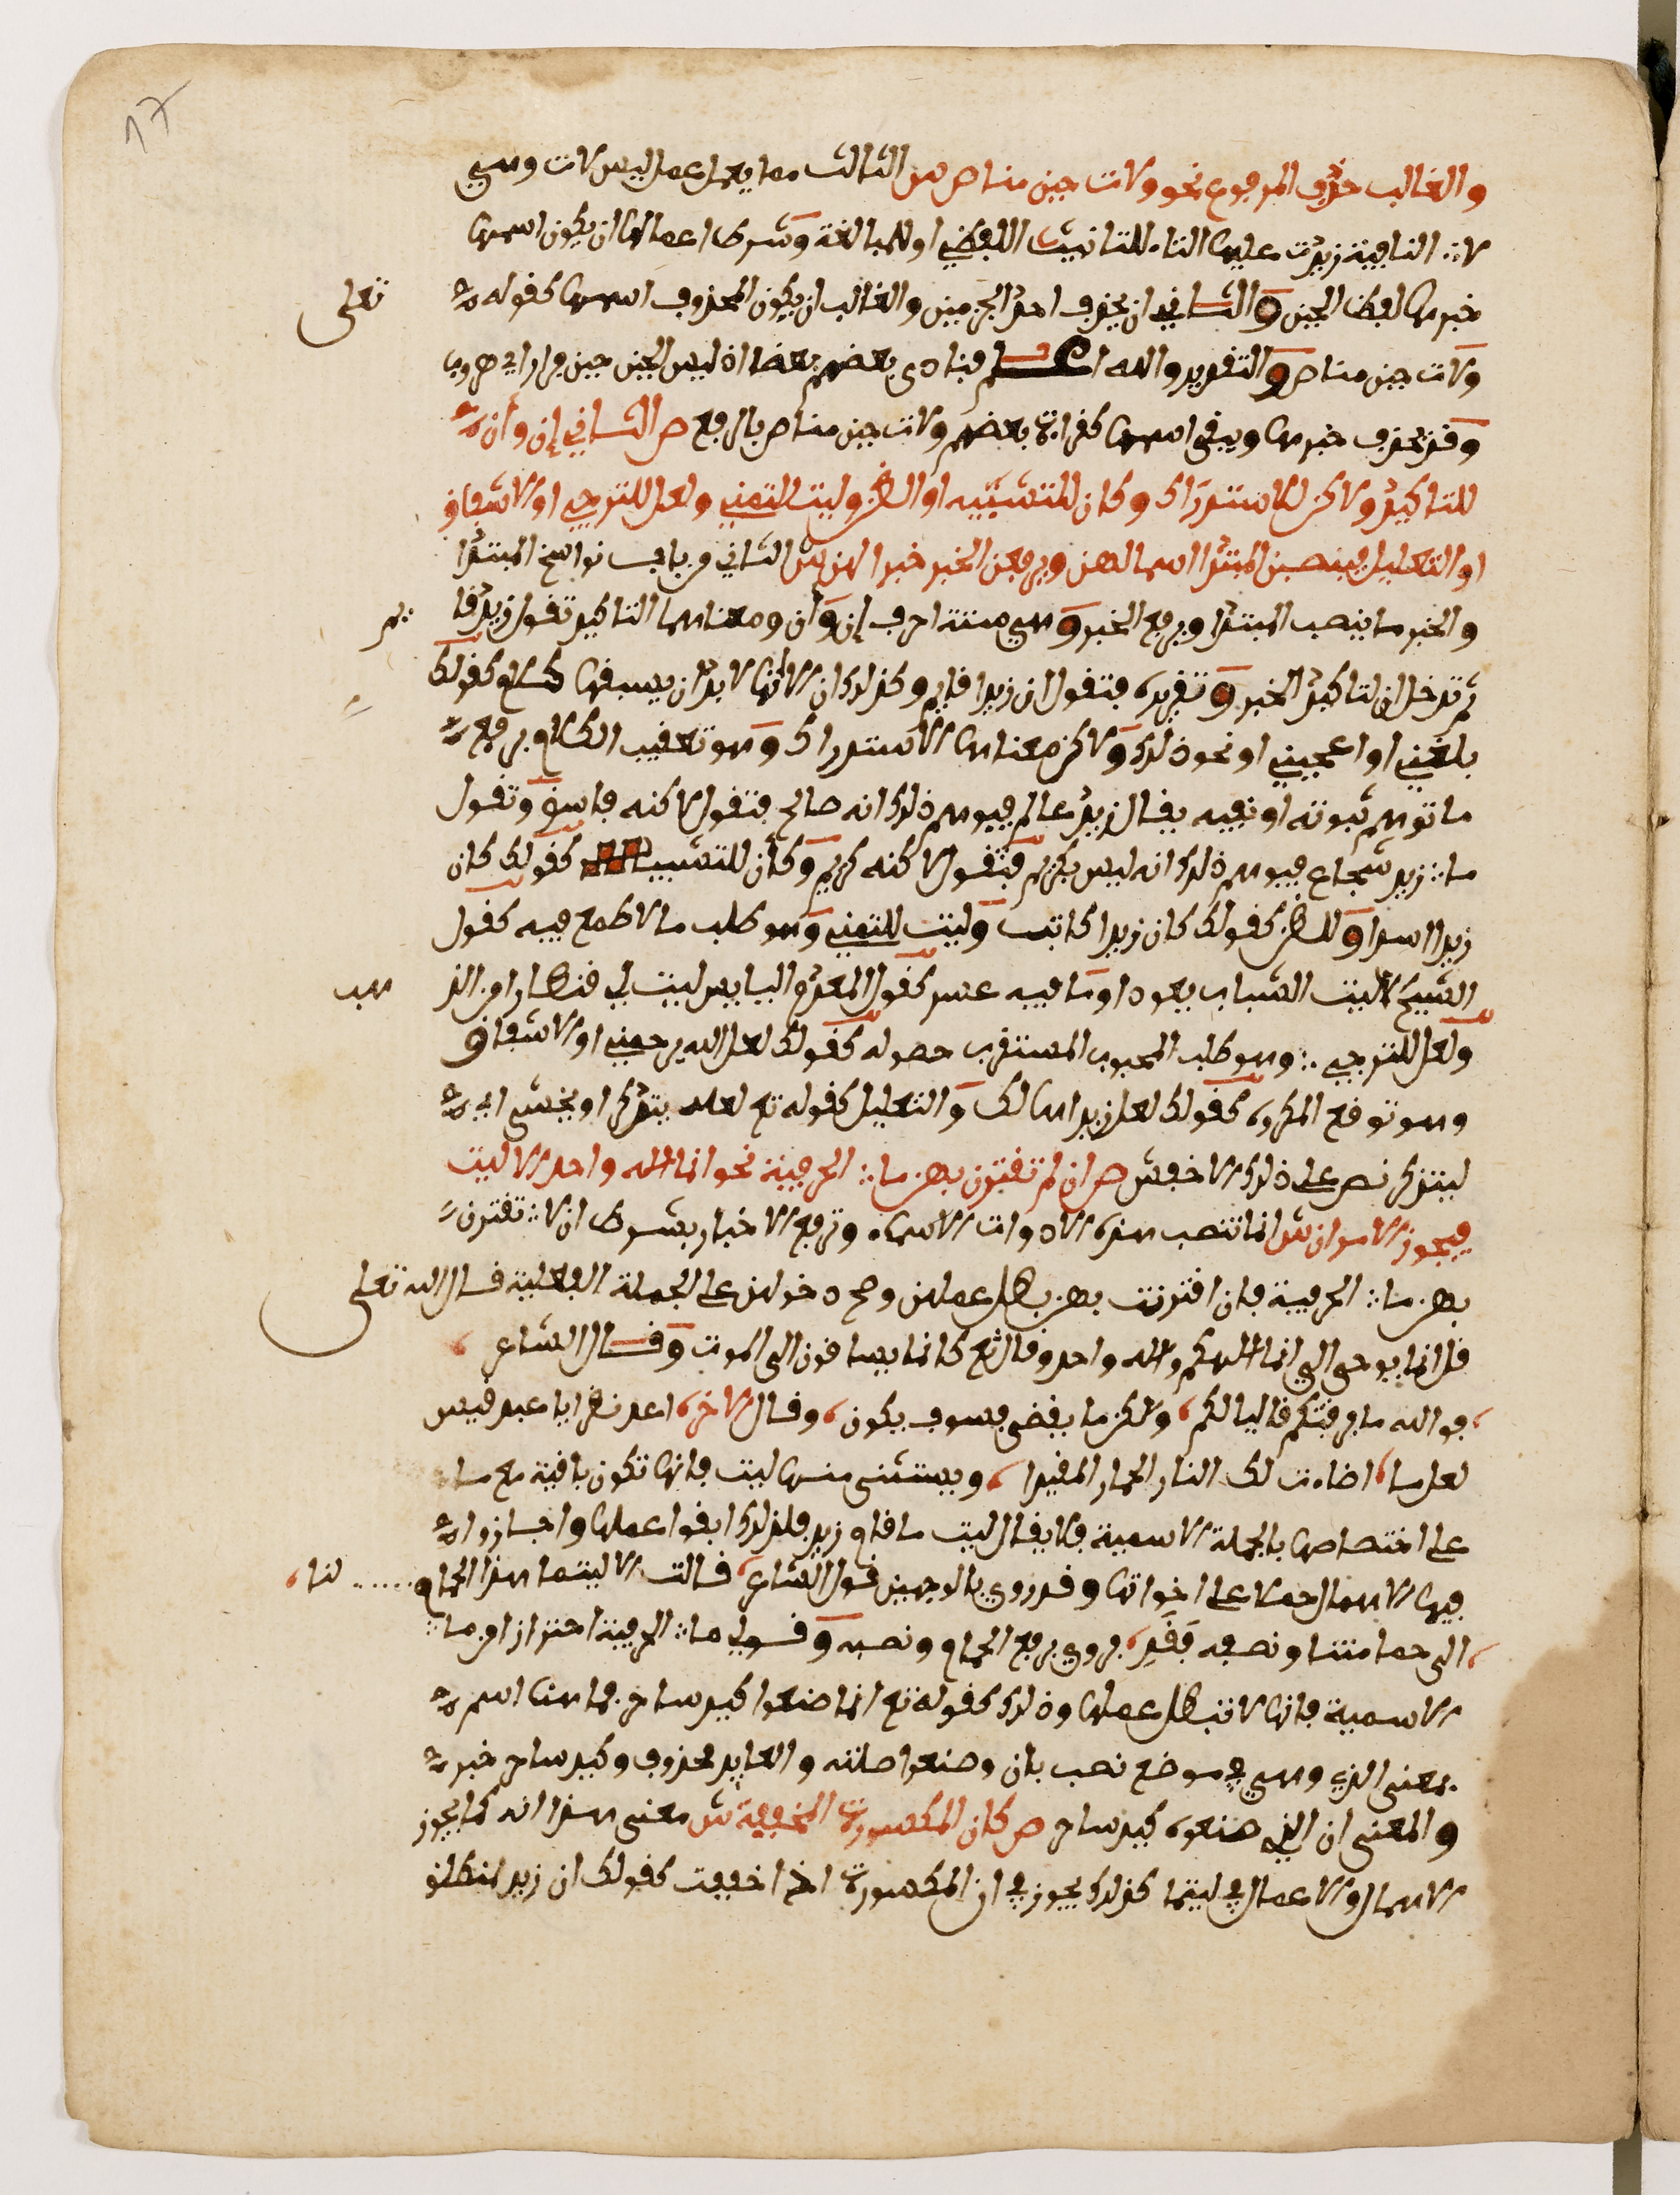 17
والغالب حذف المرفوع نحو ولات حين مناص ش الثالث مما يعمل عمل ليس لات وهي
لا النافية زيدت عليها التاء للتانيث اللفظي او للمبالغة وشرط اعمالها ان يكون اسمها
خبرها لفظ الحين والثاني ان يحذف احد الجزءين والغالب ان يكون المحذوف اسمها كقوله تعلى
ولات حين مناص والتقدير والله اعلم فنادى بعضهم بعضا ان ليس الحين حين فرار اي هروب
وقد يحذف خبرها ويبقى اسمها كقراءة بعضهم ولات حين مناص بالرفع ص الثاني إن وأن
للتاكيد ولاكن للاستدراك وكان للتشبيه او الظن وليت للتمني ولعل للترجي او الاشفاق
او التعليل فينصبن المبتدا اسما لهن ويرفعن الخبر خبرا لهن ش الثاني من باب نواسخ المبتدا
والخبر ما ينصب المبتدا ويرفع الخبر وهي ستة احرف إن وأن ومعناهما التاكيد تقول زيد قايم
ثم تدخل ان لتاكيد الخبر وتقريره فتقول ان زيدا قايم وكذلك ان الا انها لا بد ان يسبقها كلام كقولك
بلغني او اعجبني او نحو ذلك ولاكن معناها الاستدراك وهو تعقيب الكلام برفع
ما توهم ثبوته او نفيه يقال زيد عالم فيوهم ذلك انه صالح فتقول لاكنه فاسق وتقول
ما زيد شجاع فيوهم ذلك انه ليس بكريم فتقول لاكنه كريم وكأن للتشبيه كقولك كان
زيدا اسدا وللظن كقولك كان زيدا كاتب وليت للتمني وهو طلب ما لا طمع فيه كقول
الشيخ ليت الشباب يعود او ما فيه عسر كقول المعدم البايس ليت لي قنطارا من الذهب
ولعل للترجي وهو طلب المحبوب المستقرب حصوله كقولك لعل الله يرحمني او الاشفاق
وهو توقع المكروه كقولك لعل زيدا هالك والتعليل كقوله تع لعله يتذكر او يخشى اي
ليتذكر نص على ذلك الاخفش ص ان لم تقترن بهن ما الحرفية نحو انما الله واحد الا ليت
فيجوز الامران ش انما تنصب هذه الادوات الاسماء وترفع الاخبار بشرط ان لا تقترن
بهن ما الحرفية فان اقترنت بهن بطل عملهن وصح دخولهن على الجملة الفعلية قال الله تعلى
قل انما يوحى الي انما الهكم واله واحد وقال تع كانما يساقون الى الموت وقال الشاعر
فوالله ما فارقتكم قاليا لكم ولكن ما يقضى فسوف يكون وقال الاخر اعد نظرا يا عبد قيس
لعل ما اضاءت لك النار الحمار المقيدا ويستثنى منها ليت فانها تكون باقية مع ما
على اختصاصها بالجملة الاسمية فلا يقال ليت ما قام زيد فلذلك ابقوا عملها واجازوا
فيها الاهمال حملا على اخواتها وقد روي بالوجهين قول الشاعر قالت الا ليتما هذا الحمام لنا
الى حمامتنا ونصفه فقد فروي برفع الحمام ونصبه وقولي ما الحرفية احتراز من ما
الاسمية فانها لا تبطل عملها وذلك كقوله تع انما صنعوا كيد ساحر فما هنا اسم
بمعنى الذي وهي في موضع نصب بان وصنعوا صلته والعايد محذوف وكيد ساحر خبر
والمعنى ان الذي صنعوه كيد ساحر ص كان المكسورة المخففة ش معنى هذا انه كما يجوز
الاهمال والاعمال في ليتما كذلك يجوز في ان المكسورة اذا خففت كقولك ان زيد لمنطلق